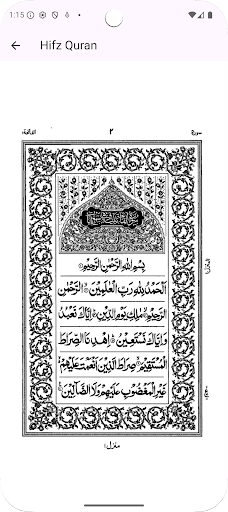 1:15
Hifz Quran
الفاتحة ١
٢
بِسْمِ اللهِ الرَّحْمٰنِ الرَّحِيْمِ
اَلْحَمْدُ لِلّٰهِ رَبِّ الْعٰلَمِيْنَ الرَّحْمٰنِ
الرَّحِيْمِ مٰلِكِ يَوْمِ الدِّيْنِ اِيَّاكَ نَعْبُدُ
وَاِيَّاكَ نَسْتَعِيْنُ اِهْدِنَا الصِّرَاطَ
الْمُسْتَقِيْمَ صِرَاطَ الَّذِيْنَ اَنْعَمْتَ عَلَيْهِمْ
غَيْرِ الْمَغْضُوْبِ عَلَيْهِمْ وَلَا الضَّآلِّيْنَ
منزل ١